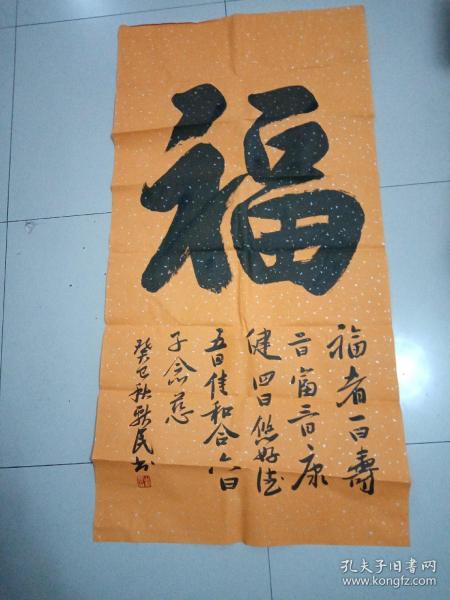 福
福者一曰壽
二曰富三曰康
健四曰悠好德
五曰佳和合六曰
子念慈
癸巳秋民书
孔夫子旧书网
www.kongfz.com